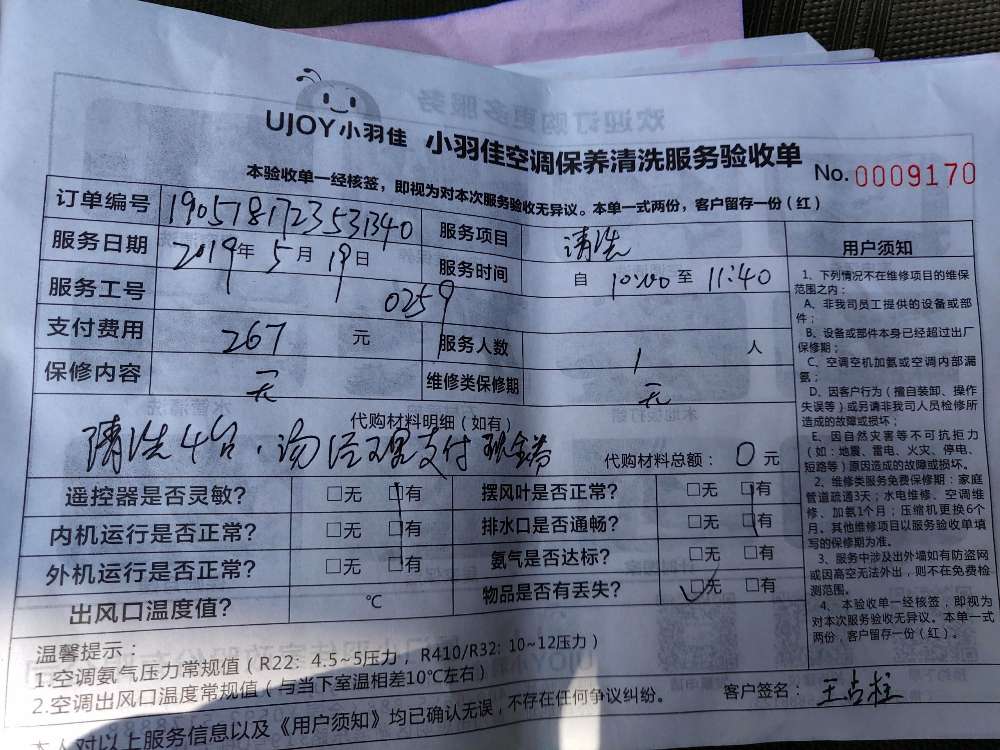 UJOY小羽佳 小羽佳空调保养清洗服务验收单
No. 0009170
本验收单一经核签，即视为对本次服务验收无异议。本单一式两份，客户留存一份（红）
订单编号 1905781723531340 服务项目 清洗
服务日期 2019年5月19日 服务时间 自 10:00 至 11:40
服务工号 0259
支付费用 267 元 服务人数 1 人
保修内容 无 维修类保修期 无
代购材料明细（如有）
清洗4台，汤经理支付现金券 代购材料总额： 0 元
遥控器是否灵敏? □无 □有 摆风叶是否正常? □无 □有
内机运行是否正常? □无 □有 排水口是否通畅? □无 □有
外机运行是否正常? □无 □有 氨气是否达标? □无 □有
出风口温度值? ℃ 物品是否有丢失? □无 □有
温馨提示：
1.空调氨气压力常规值（R22: 4.5~5压力，R410/R32: 10~12压力）
2.空调出风口温度常规值（与当下室温相差10℃左右）
本人对以上服务信息以及《用户须知》均已确认无误，不存在任何争议纠纷。
客户签名： 王占柱
用户须知
1、下列情况不在维修项目的维保
范围之内：
A、非我司员工提供的设备或部
件；
B、设备或部件本身已经超过出厂
保修期；
C、空调空机加氨或空调内部漏
氨；
D、因客户行为（擅自装卸、操作
失误等）或另请非我司人员检修所
造成的故障或损坏；
E、因自然灾害等不可抗拒力
（如：地震、雷电、火灾、停电、
短路等）原因造成的故障或损坏。
2、维修类服务免费保修期：家庭
管道疏通3天；水电维修、空调维
修、加氨1个月；压缩机更换6个
月。其他维修项目以服务验收单填
写的保修期为准。
3、服务中涉及出外墙如有防盗网
或因高空无法外出，则不在免费检
测范围。
4、本验收单一经核签，即视为
对本次服务验收无异议。本单一式
两份，客户留存一份（红）。